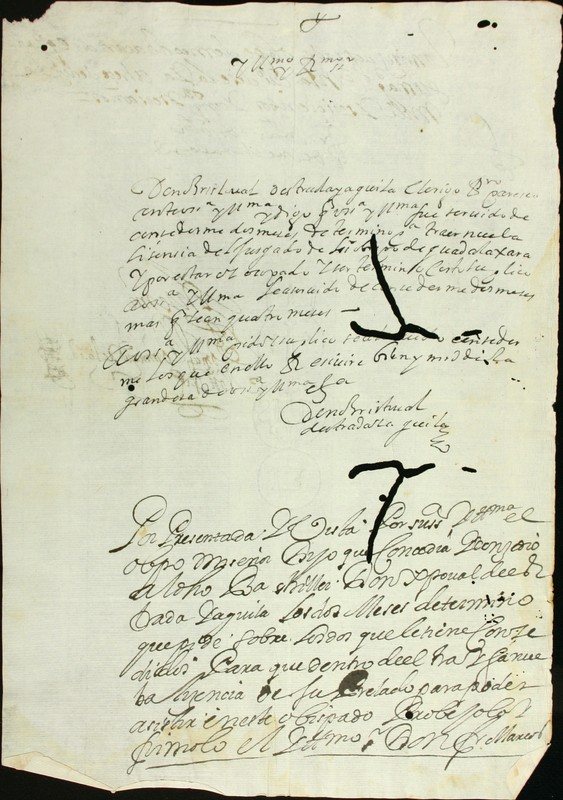 Yllmo Rmo Sr
Don Christual de estrada y aguila Clerigo Bro paresco
ante vsa Yllma y digo q vsa Yllma fue servido de
consederme dos meses de termino pa traer nueba
lisensia del Jusgado de obispo de guadalaxara
Y por estar termino Corto suplico
a vsa Yllma sea servido de consederme dos meses
mas q sean quatro meses
A vsa Yllma pido suplico sea servido conseder
me lo que en ello resivire bien y md de la
grandesa de vsa Yllma
Don Christual
de estrada y aguila
Por Presentada Y Vista Por su sa Yllma el
obpo mi señor Dijo que Concedia Y Concedio
a dho Ba chiller Don Xptoual de es
trada Y aguila los dos Meses de termino
que pide sobre los dos que le tiene Conse
didos Para que dentro de el traYga nue
ba lizencia de su Prelado para poder
asistir en este obispado Y
firmolo el Yllmo Sr Don Marcos